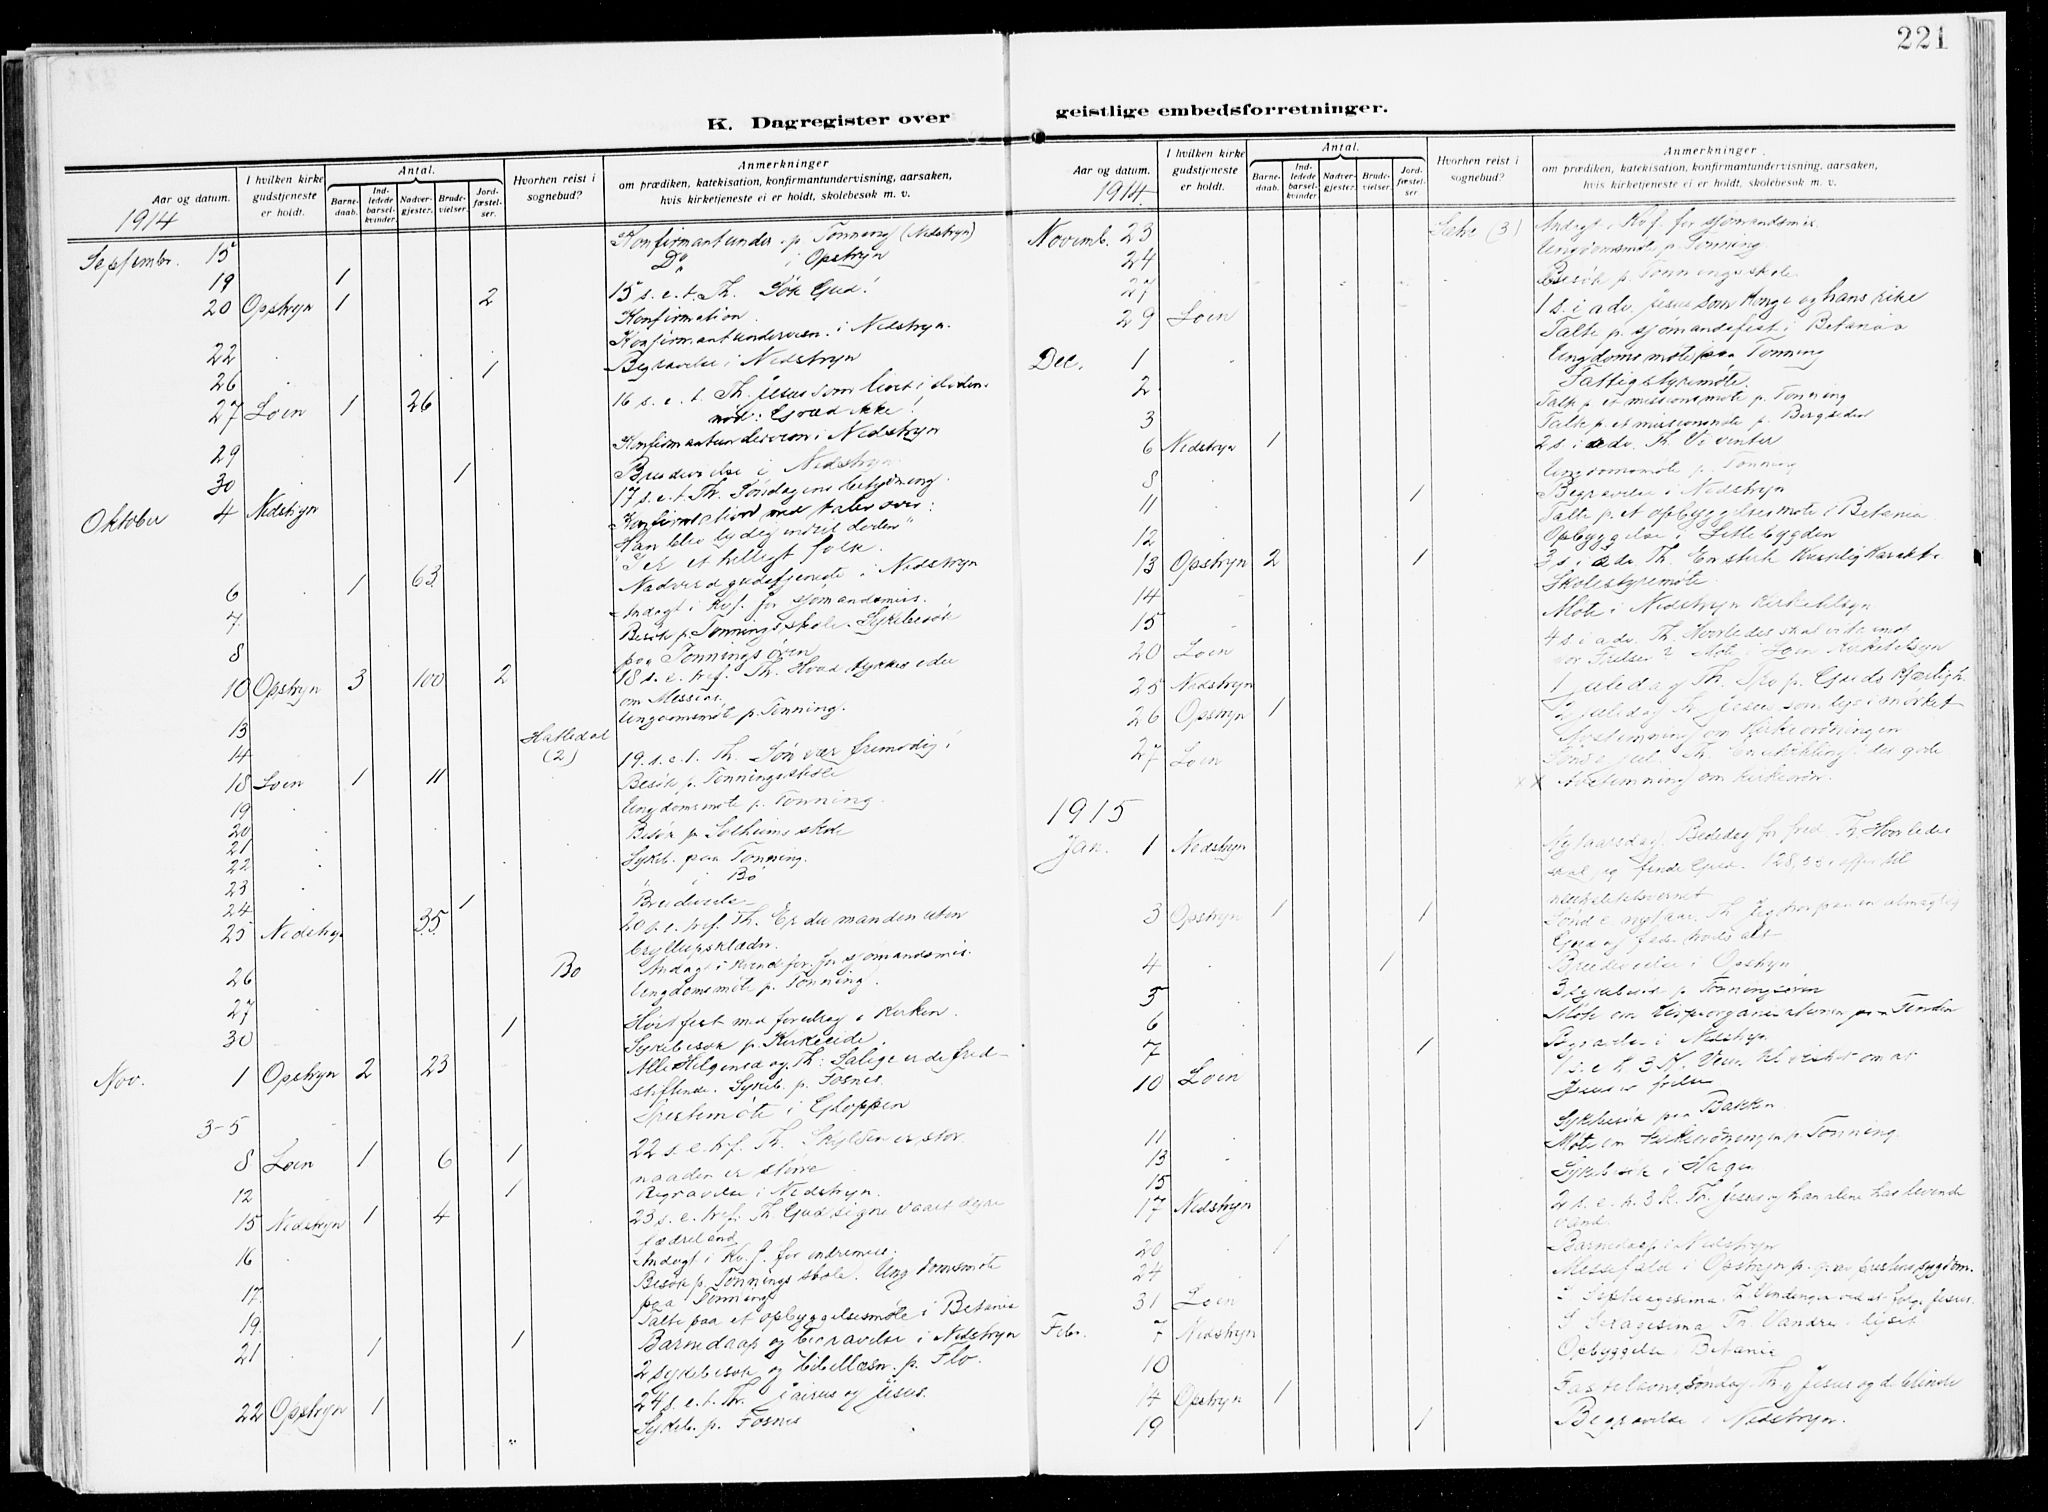 221
K. Dagregister over
Aar og datum.
1914
I hvilken kirke gudstjeneste er holdt.
Antal.
Barnedaab.
Indledede barselkvinder.
Nadvergjester.
Brudevielser.
Jordfæstelser.
Hvorhen reist i sognebud?
Anmerkninger
om prædiken, katekisation, konfirmantundervisning, aarsaken,
hvis kirketjeneste ei er holdt, skolebesøk m. v.
Septembr. 15 Konfirmantunder. p. Tonning (Nedstryn)
Do i Opstryn
19 1
20 Opstryn 1 2 15 s. e. t. Th. Søk Gud!
Konfirmation.
22 Konfirmantundervisn. i Nedstryn.
26 1 Begravelse i Nedstryn
27 Loen 1 26 16 s. e. t. Th. Jesus som livet i døden.
Graad ikke!
29 Konfirmantundervisn i Nedstryn
30 1 Brudevielse i Nedstryn.
Oktober 4 Nedstryn 17 s. e. t. Th. Søndagens betydning.
Konfirmation med taler over:
Han blev lydig indtil døden"
"I er et helligt folk.
6 1 63 Nadverdgudstjeneste i Nedstryn
7 Andagt i Kvf. for sjømandsmis.
Besøk p. Tonningsskole. Sykebesøk
8 paa Tonningsøren
10 Opstryn 3 100 2 18 s. e. tref. Th. Hvad tykkes eder
om Messias.
13 Ungdomsmøt p. Tonning.
14 Hatledal
(2)
18 Loen 1 11 19. s. e. t. Th. Søn vær frimodig!
19 Besøk p. Tonningsskole
20 Ungdomsmøte p. Tonning.
21 Besøk p. Solheims skole
22 Sykeb. paa Tonning.
23 " i Bø
24 1 Brudevielse
25 Nedstryn 35 20 s. e. tref. Th. Er du manden uten
bryllupsklædn.
26 Bø Andagt i kvindefor. for sjømandsmis.
27 Ungdomsmøte p. Tonning.
30 1 Høstfest med foredrag i kirken.
Sykebesøk p. Kirkeeide.
Nov. 1 Opstryn 2 23 Alle Helgensdag. Th: Salige er de fred-
stiftende. Sykeb. p. Fosnes.
3-5 Prestemøte i Gloppen
8 Loen 1 6 1 22 s. e. tref. Th. Skylden er stor.
naaden er større
12 1 Begravelse i Nedstryn.
15 Nedstryn 1 4 23 s. e. tref. Th. Gud signe vaart dyre
fædreland
16 Andagt i Kv.f. for indremis.
17. Besøk p. Tonnings skole. Ungdomsmøte
paa Tonning
19. Talte paa et opbyggelsesmøte i Betania
21 1 1 Barnedaap og begravelse i Nedstryn
2 sykebesøk og bibellæsn. p. Flo.
22 Opstryn 1 24 s. e. t. Th. Jairus og Jesus.
Sykeb. p. Fosnes
geistlige embedsforretninger.
Aar og datum.
1914
I hvilken kirke gudstjeneste er holdt.
Antal.
Barnedaab.
Indledede barselkvinder.
Nadvergjester.
Brudevielser.
Jordfæstelser.
Hvorhen reist i sognebud?
Anmerkninger
om prædiken, katekisation, konfirmantundervisning, aarsaken,
hvis kirketjeneste ei er holdt, skolebesøk m. v.
Novemb. 23 (3) Andagt i Kvf. for sjømandsmis.
24 Ungdomsmøte p. Tonning
27 Besøk p. Tonningsskole
29 Loen 1 s. i adv. Jesus som konge og hans rike
Talte p. sjømandsfest i Betania
Dec. 1 Ungdomsmøte paa Tonning
2 Fattigstyremøte.
Talte p. et missionsmøte p. Tonning
3 Talte p. et missionsmøte p. Bergsiden
6 Nedstryn 1 2 s. i adv. Th. Vi venter
8 Ungdomsmøte p. Tonning
11 1 Begravelse i Nedstryn
Talte p. et opbyggelsesmøte i Betania
12 Opbyggelse i
13 Opstryn 2 1 3 s. i adv. Th. En sterk
14 Skolestyremøte.
15 Møte i Nedstryn kirketilsyn
20 Loen 4 s. i adv. Th. Hvorledes skal vi ta imot
vor Frelser? Møte i Loen kirketilsyn
25 Nedstryn 1 juledag Th. Tro p. Guds kjærligh.
26 Opstryn 1 2 juledag Th. Jesus som lys i mørket
Avstemning om kirkeordningen
27 Loen Sønd e. jul. Th. det gode
Avstemning om kirkeordn.
1915
Jan. 1 Nedstryn Nytaarsdag. Bededag for fred. Th. Hvorledes
skal jeg finde Gud.
3 Opstryn 1 1 Sønd e. nytaar. Th. Jeg tror paa en almægtig
Gud
4 1 Brudevielse i Opstryn
5 3 sykebesøk p. Tonningsøren
6 Møte om
7 1 Begravelse i Nedstryn
10 Loen 1 s. e. h. 3 K. om at
Jesus er frelser
Sykebesøk paa Bakken
11 Møte om kirkeordningen p. Tonning.
13 Sykebesøk i Hagen
15
17 Nedstryn 2 s. e. h. 3 k. Th. Jesus og han alene har levende
vand.
20 1 Barnedaap i Nedstryn
24 Messefald i Opstryn p. gr. av prestens sygdom.
31 Loen S Septuagesima. følge Jesus.
Febr. 7 Nedstryn S Sexagesima Th. Vandre i lyset
10 Opbyggelse i Betania
14 Opstryn 1 Fastelavnssøndag. Th. Jesus og d. blinde
19 1 Begravelse i Nedstryn.